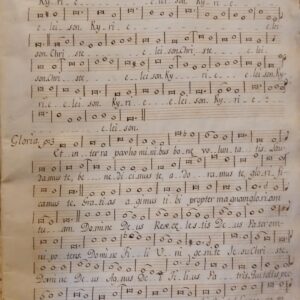 Ky.. ri.. e..
e.. lei son. Ky. ri.. e..
son. Chri.. ste.. e.. lei
son. Chri.. ste.. e.. lei son. Chri.. ste..
son. Chri.. ste.. e.. lei son. Ky.. ri.. e..
e.. lei son. Ky.. ri.. e.. e.. lei son. Ky
ri.. e.. lei son. Ky.. ri.. e..
e.. lei son.
Gloria.
Et in ter ra pax ho mi ni bus bo ne vo lun ta tis. Lau
damus te, be ne di ci mus te, a do.. ra.. mus te, glo ri fi
camus te. Gra ti as a gimus ti bi propter magnam glo ri am
tu.. am. Domi ne De.. us Rex ce les tis De us Pater om
ni po tens. Domi ne Fi li V ni ge ni te Je su Chri ste.
Domi ne De us Agnus De.. i Fi li us Pa.. tris.